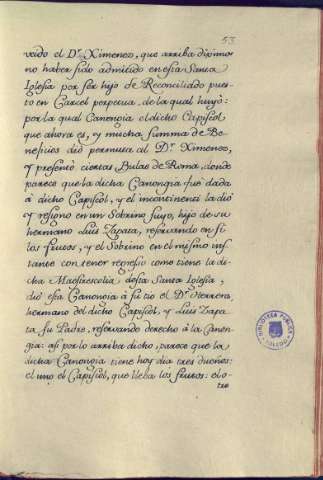 53
veido el D.r Ximenez, que arriba diximos
no haber sido admitido en esta Santa
Iglesia por ser hijo de Reconciliado pues-
to en Carcel perpetua, de la qual huyò:
por la qual Canongia el dicho Capiscol
que ahora es, y mucha summa de Be-
neficios diò permuta al D.r Ximenez,
y presentò ciertas Bulas de Roma, donde
parece que la dicha Canongia fue dada
à dicho Capiscol, y el incontinenti la diò
y resignò en un Sobrino suyo, hijo de su
hermano Luis Zapata, reservando en si
los frutos, y el Sobrino en el mismo ins-
tante con tener regresso como tiene la di-
cha Maestrescolia desta Santa Iglesia,
diò esta Canongia à su tio el D.r Herrera,
hermano del dicho Capiscol, y Luis Zapa-
ta su Padre, reservando derecho à la Canon-
gia: asi por lo arriba dicho, parece que la
dicha Canongia tiene hoy dia tres dueños:
el uno el Capiscol, que lleba los frutos: el o-
tro
BIBLIOTECA PUBLICA
TOLEDO